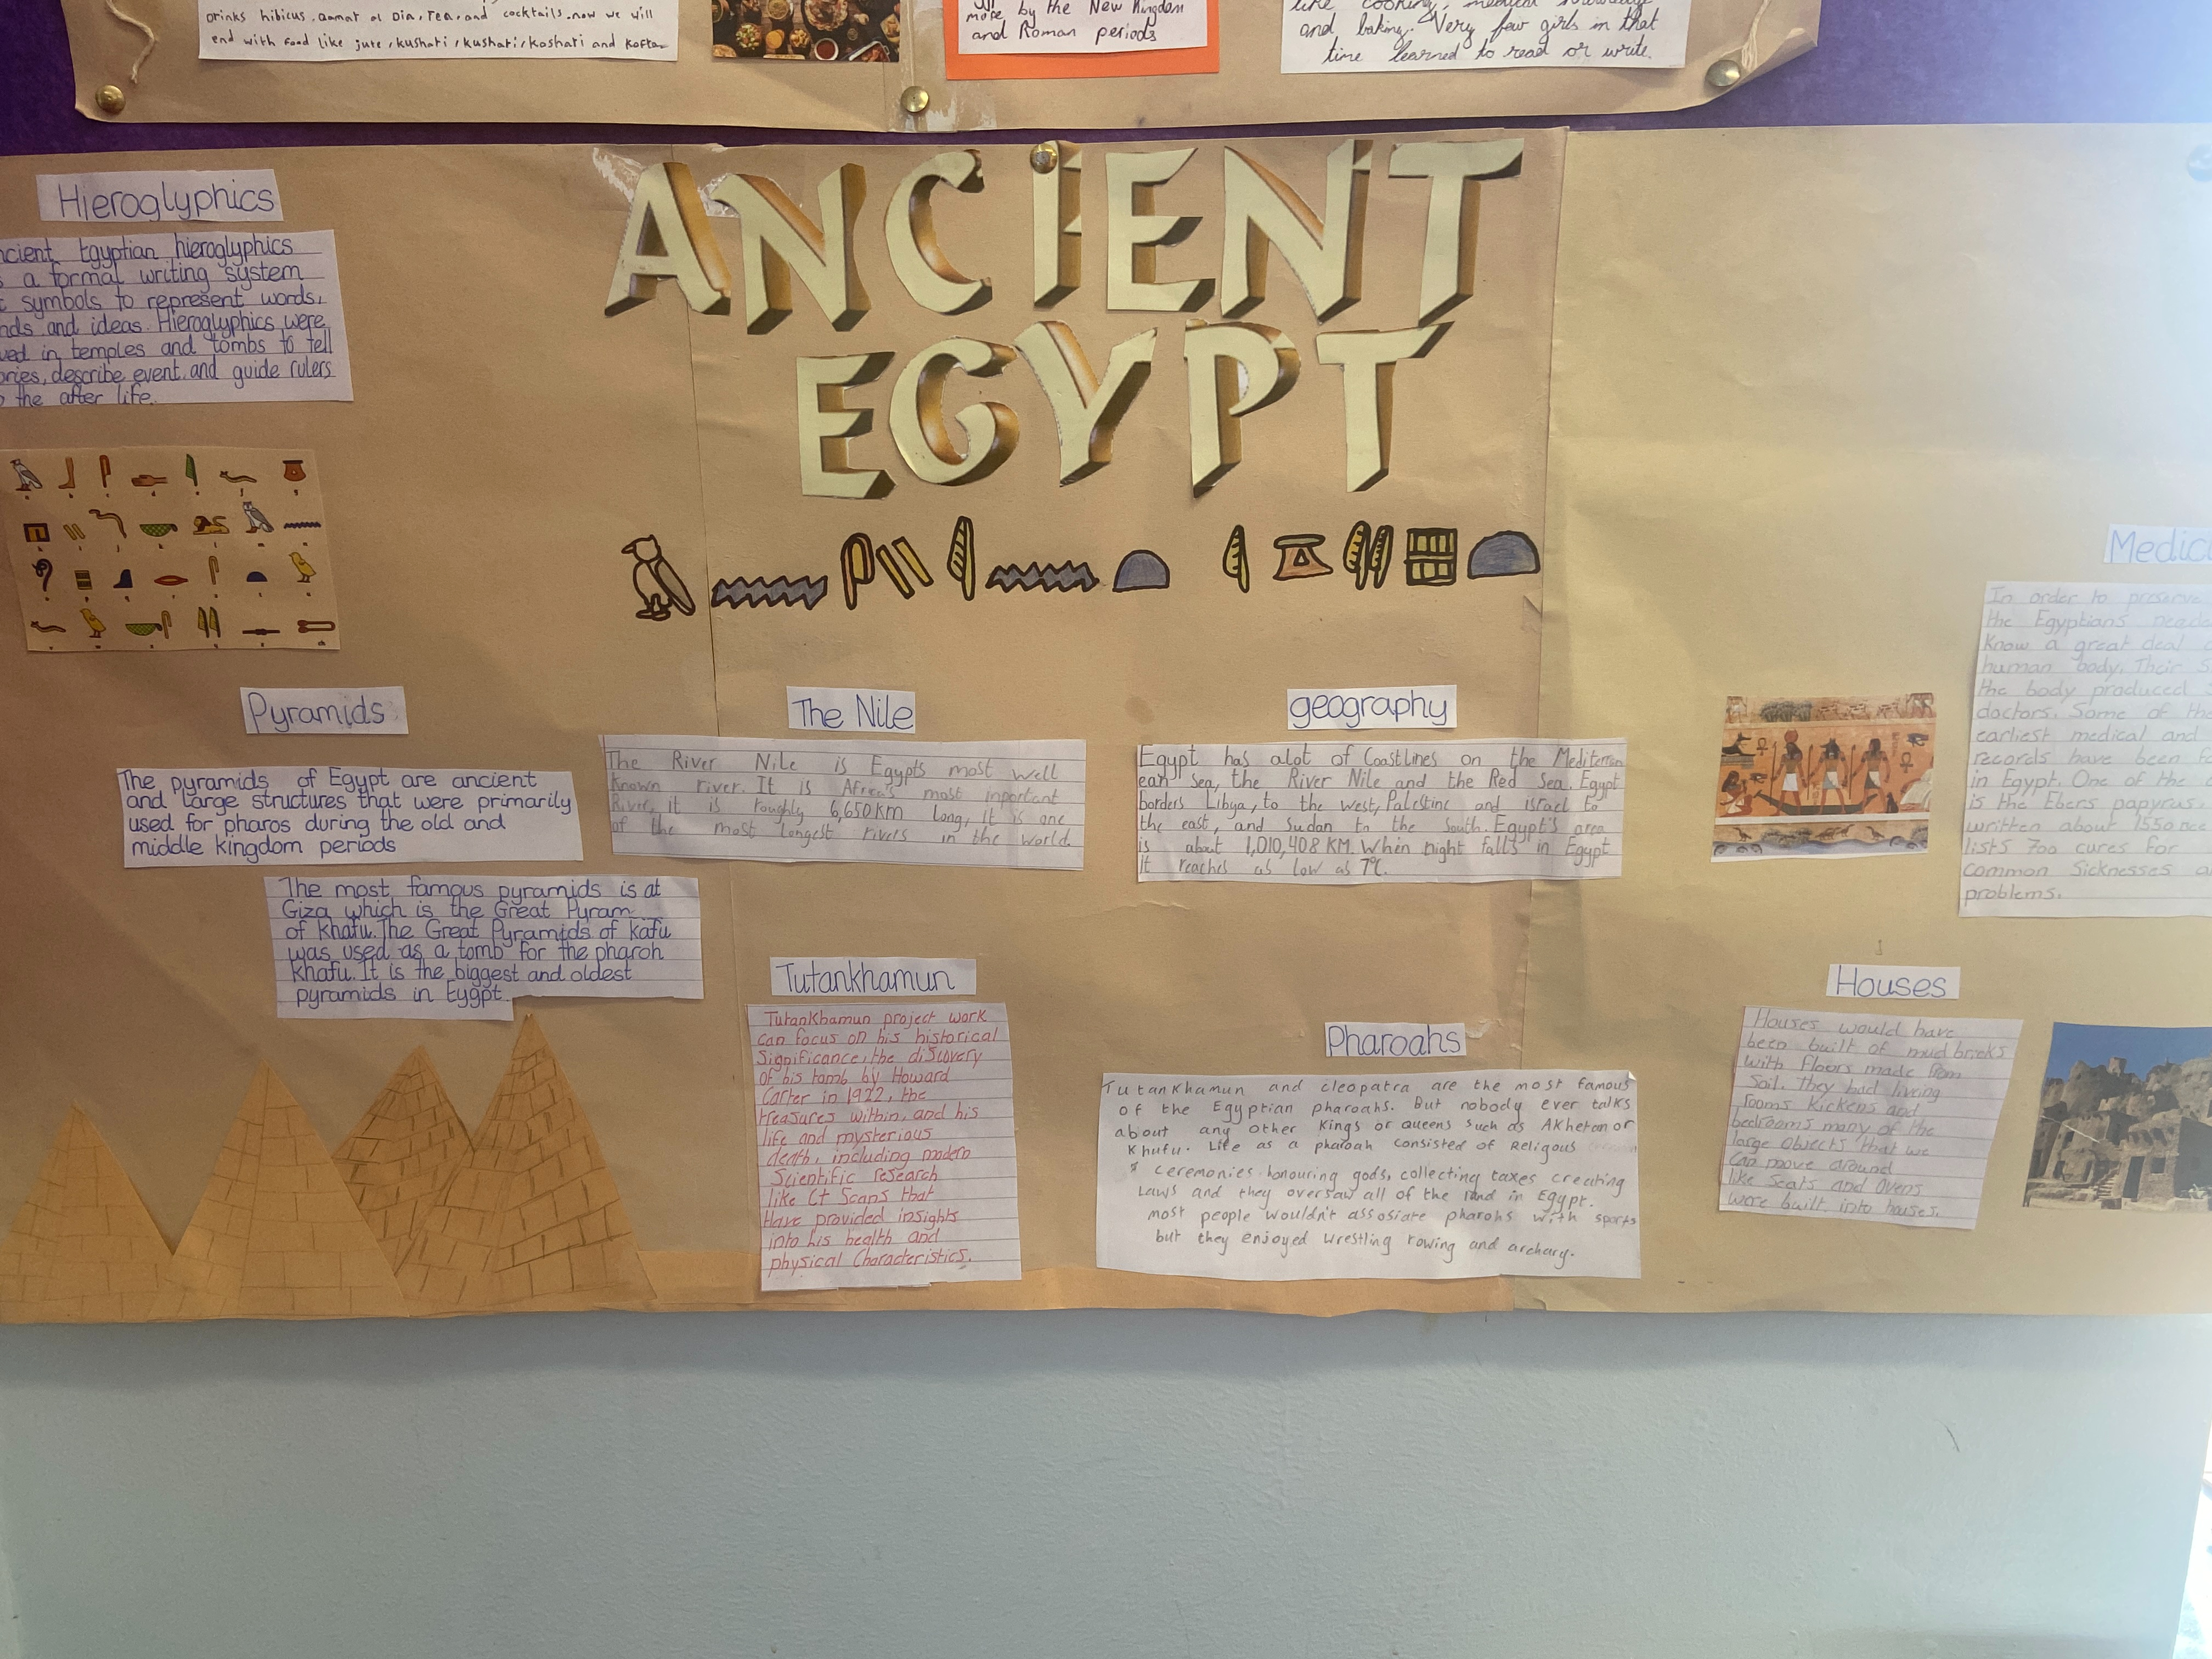 drinks hibicus
Tea, and cocktails. now we will
end with food like jute, kushari, kushari, koshari and kofta.
more by the New Kingdom
and Roman periods
like cooking, medical
and baking. Very few girls in that
time learned to read or write.
ANCIENT
EGYPT
Hieroglyphics
Egyptian hieroglyphics
a formal writing system
symbols to represent words,
and ideas. Hieroglyphics were
in temples and tombs to tell
describe event, and guide rulers
the after life.
Pyramids
The pyramids of Egypt are ancient
and large structures that were primarily
used for pharos during the old and
middle kingdom periods
The most famous pyramids is at
Giza which is the Great Pyram
of khafu. The Great Pyramids of kafu
was used as a tomb for the pharoh
khafu. It is the biggest and oldest
pyramids in Eygpt.
The Nile
The River Nile is Egypts most well
known river. It is Africa's most important
River, it is roughly 6,650KM long, It is one
of the most longest rivers in the world.
geography
Egypt has alot of Coastlines on the Mediterran
ean Sea, the River Nile and the Red Sea. Egypt
borders Libya, to the west, Palestine and israel to
the east, and Sudan to the South. Egypt's area
is about 1,010,408 KM. When night falls in Egypt
it reaches as low as 7°C.
Tutankhamun
Tutankhamun project work
can focus on his historical
Significance, the discovery
of his tomb by Howard
Carter in 1922, the
treasures within, and his
life and mysterious
death, including modern
Scientific research
like Ct Scans that
Have provided insights
into his health and
physical Characteristics.
Pharoahs
Tutankhamun and cleopatra are the most famous
of the Egyptian pharoahs. But nobody ever talks
about any other Kings or queens such as Akheton or
Khufu. Life as a pharoah consisted of Religous
ceremonies honouring gods, collecting taxes creating
Laws and they oversaw all of the land in Egypt.
most people wouldn't assosiate pharohs with sports
but they enjoyed wrestling rowing and archary.
In order to preserve
the Egyptians
Know a great deal
human body. Their
the body produced
doctors. Some of the
earliest medical and
records have been
in Egypt. One of the
is the Ebers papyrus.
written about 1550
lists 700 cures for
common Sicknesses
problems.
Houses
Houses would have
been built of mud bricks
with floors made from
Soil. They had living
rooms Kickens and
bedrooms many of the
large objects that we
can move around
like Seats and Ovens
were built into houses.